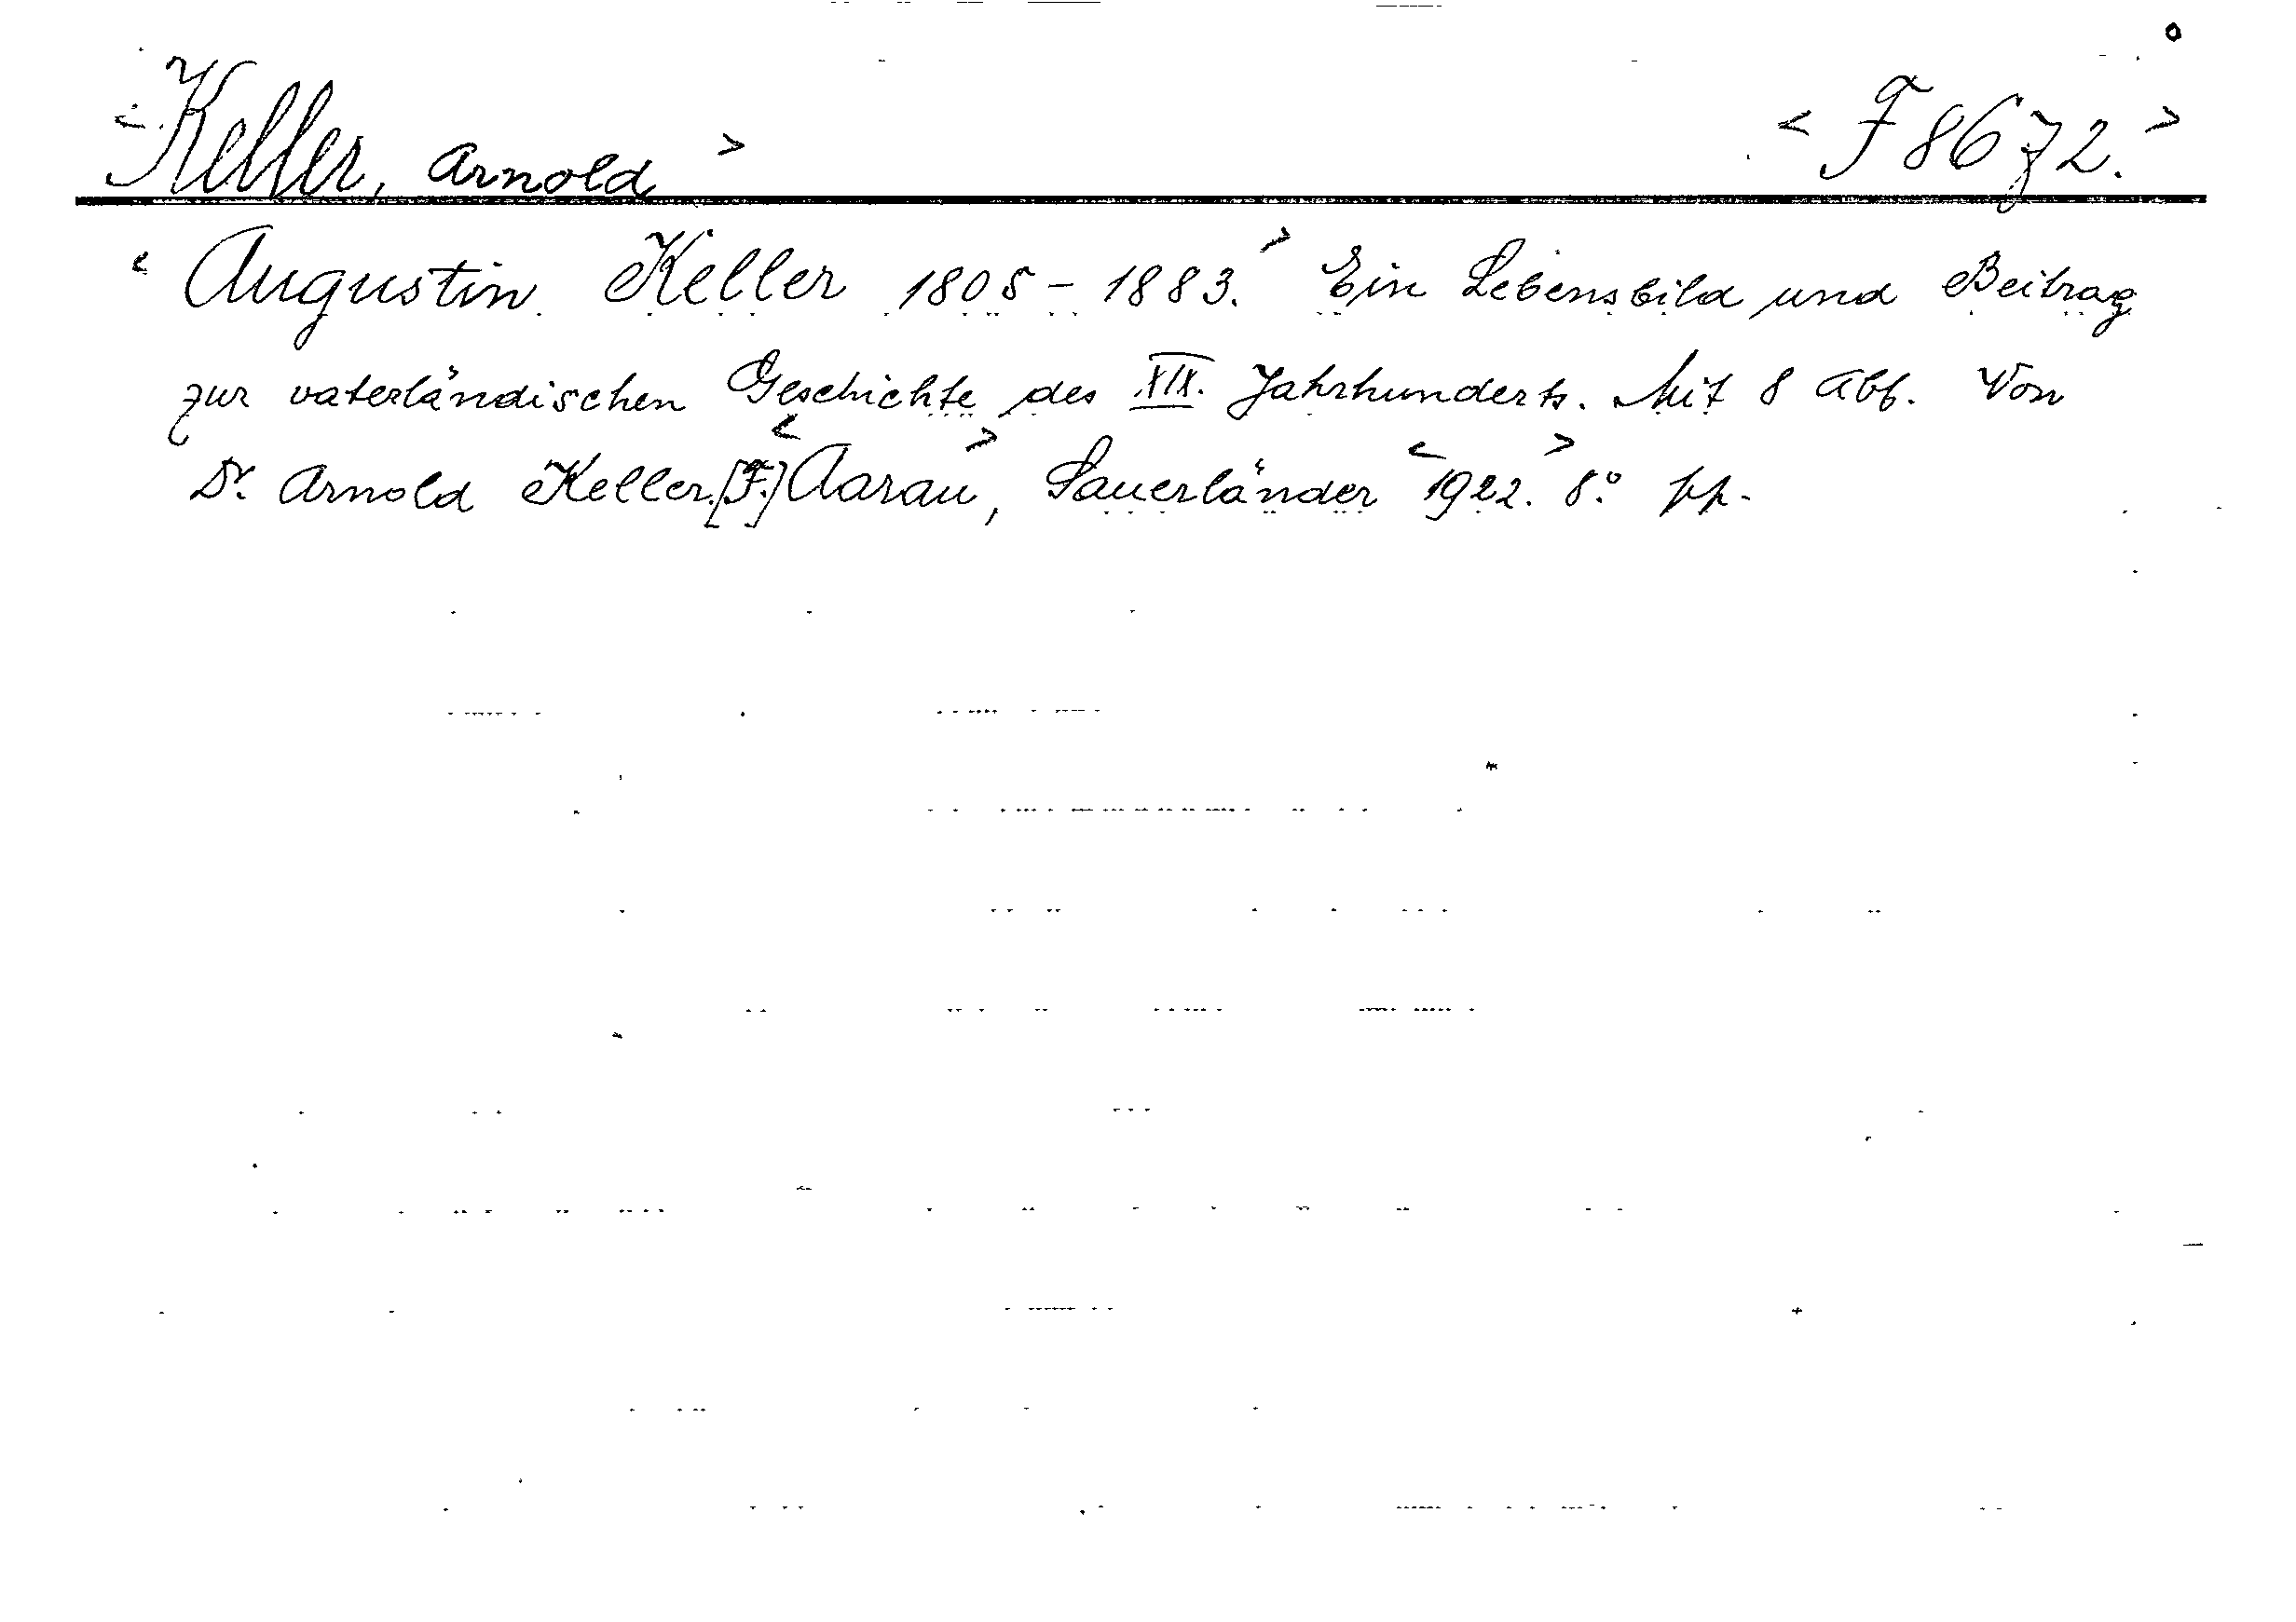 <Keller, Arnold> <F 8672.>
<Augustin Keller 1805-1883.> Ein Lebensbild und Beitrag
zur vaterländischen Geschichte des XIX. Jahrhunderts. Mit 8 Abb. Von
Dr. Arnold Keller. [F.] <Aarau>, Sauerländer <1922.> 8° pp.